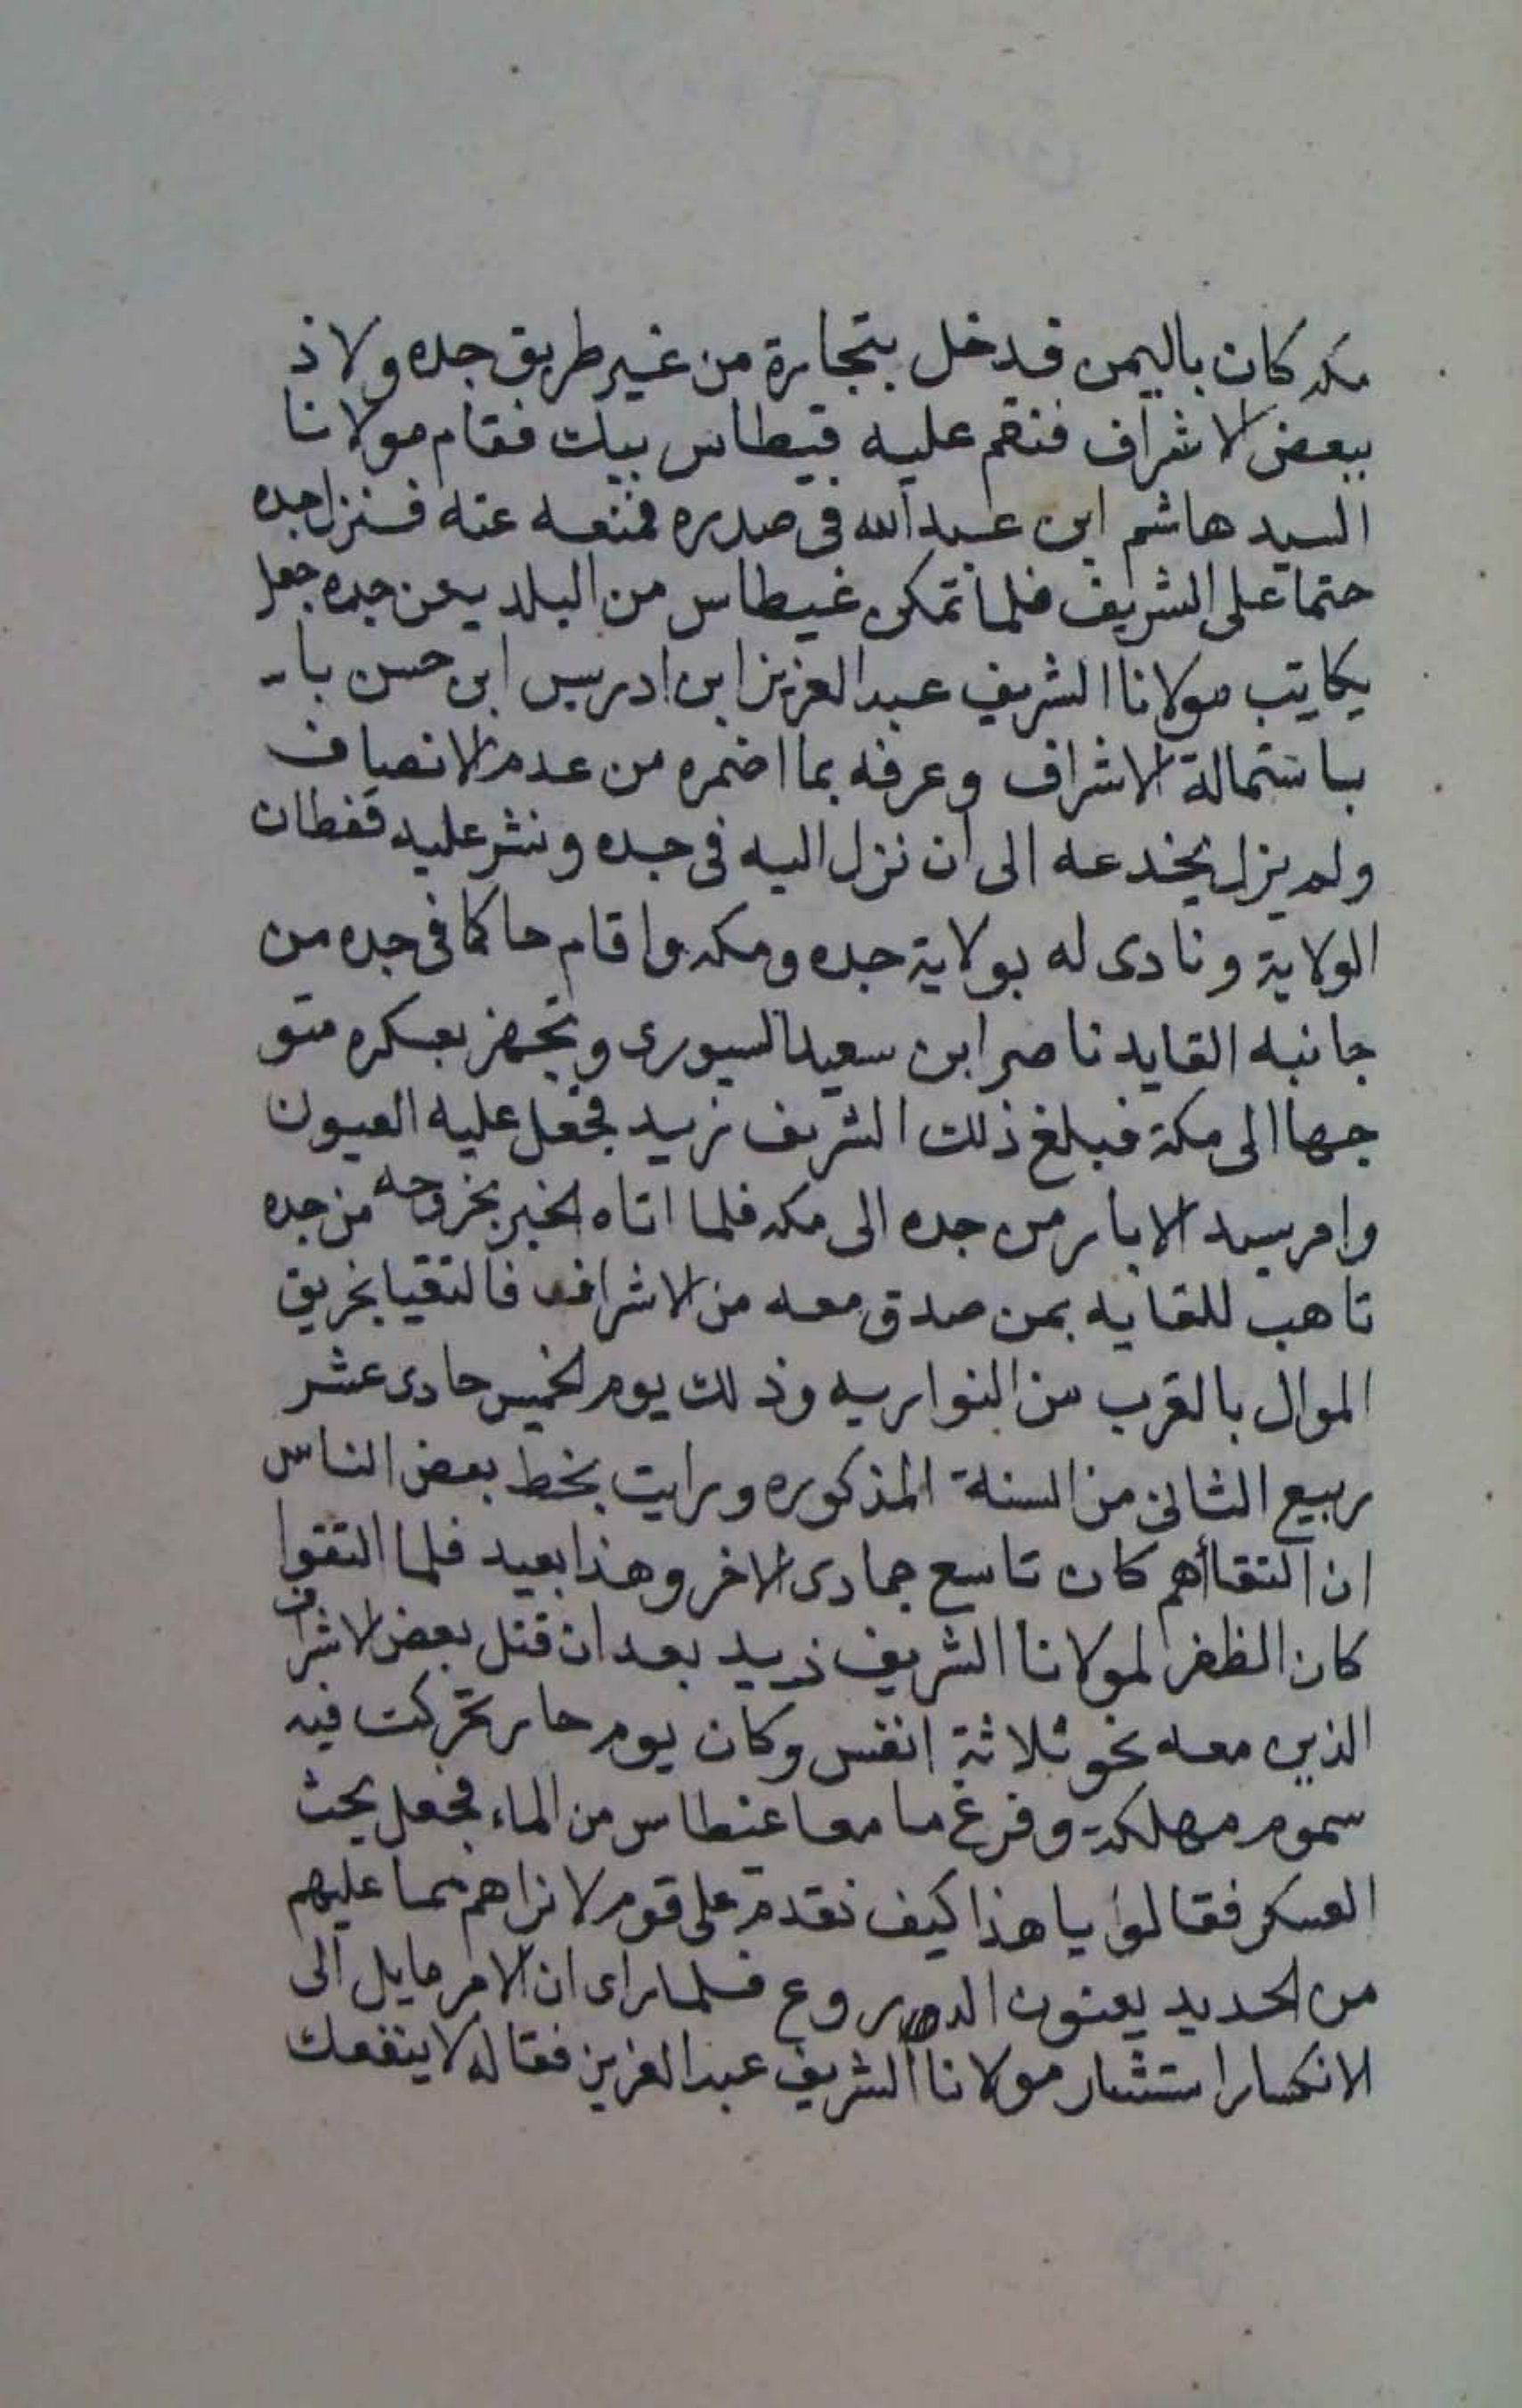 مكه كان باليمن فدخل بتجارة من غير طريق جده ولاذ
ببعض الاشراف فنقم عليه قيطاس بيك فقام مولانا
السيد هاشم ابن عبد الله في صدره فمنعه عنه فنزل جده
حتما على الشريف فلما تمكن غيطاس من البلد يعن جده جعل
يكاتب مولانا الشريف عبد العزيز ابن ادريس ابن حسن با
باستمالة الاشراف وعرفه بما اضمره من عدم الانصاف
ولم يزل يخدعه الى ان نزل اليه في جده ونشر عليه قفطان
الولاية ونادى له بولاية جده ومكه واقام حاكما في جده من
جانبه القايد ناصر ابن سعيد السيورى وتجهز بعسكره متو
جها الى مكة فبلغ ذلك الشريف زيد فجعل عليه العيون
وامر بسد الابار من جده الى مكه فلما اتاه الخبر بخروجه من جده
تاهب للقايه بمن صدق معه من الاشراف فالتقيا بخريق
الموال بالقرب من النواريه وذلك يوم الخميس حادى عشر
ربيع الثاني من السنة المذكوره ورايت بخط بعض الناس
ان التقاأهم كان تاسع جمادى الاخر وهذا بعيد فلما التقوا
كان الظفر لمولانا الشريف زيد بعد ان قتل بعض الاشراف
الذين معه نحو ثلاثة انفس وكان يوم حار تحركت فيه
سموم مهلكة وفرغ ما معا غنطاس من الماء فجعل يحث
العسكر فقالوا يا هذا كيف نقدم على قوم لا نراهم مما عليهم
من الحديد يعنون الدروع فلما راى ان الامر مايل الى
الانكسار استشار مولانا الشريف عبد العزيز فقال له لا ينفعك